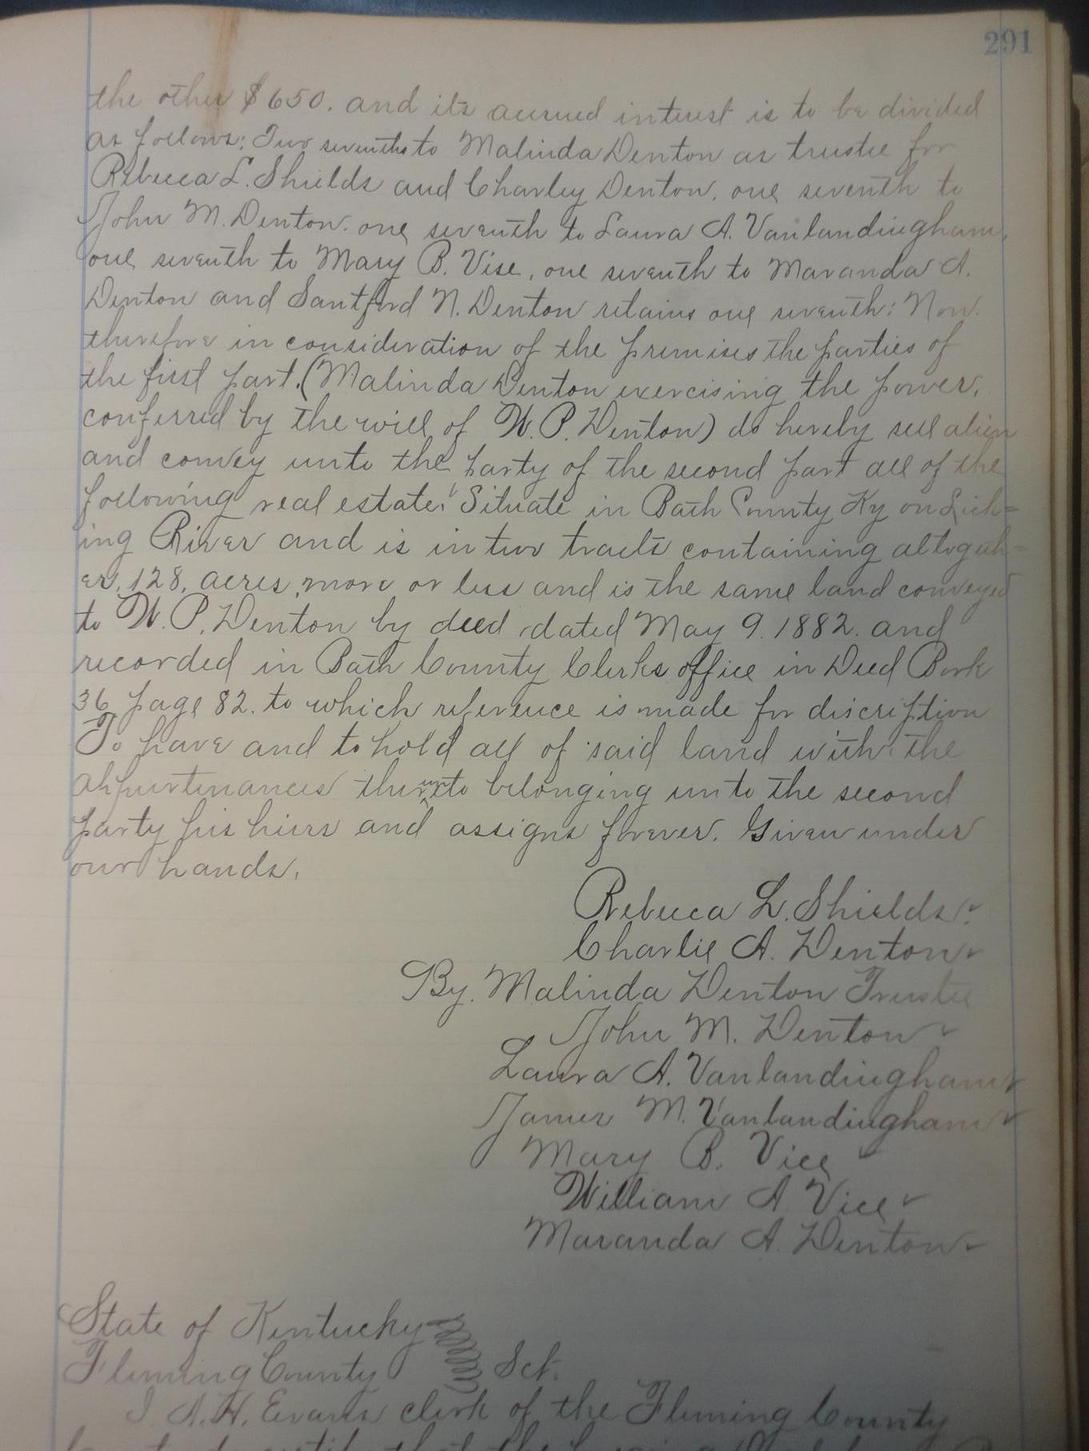 291
the other $650. and its accrued interest is to be divided
as follows: Two sevenths to Malinda Denton as trustee for
Rebecca L. Shields and Charley Denton. one seventh to
John M. Denton. one seventh to Laura A. Vanlandingham,
one seventh to Mary B. Vise, one seventh to Maranda A.
Denton and Santford N. Denton retains one seventh: Now.
therefore in consideration of the premises the parties of
the first part. (Malinda Denton exercising the power,
conferred by the will of W. P. Denton) do hereby sell alien
and convey unto the party of the second part all of the
following real estate: Situate in Bath County Ky on Lick=
ing River and is in two tracts containing altogeth=
er, 128, acres, more or less and is the same land conveyed
to W. P. Denton by deed dated May 9. 1882. and
recorded in Bath County Clerks office in Deed Book
36 page 82. to which reference is made for discription
To have and to hold all of said land with the
appurtinances thereunto belonging unto the second
party his hiers and assigns forever. Given under
our hands.
Rebecca L. Shields.
Charlie A. Denton
By. Malinda Denton Trustee
John M. Denton
Laura A. Vanlandingham
James M. Vanlandingham
Mary B. Vice
William A. Vice
Maranda A. Denton
State of Kentucky
Fleming County Sct.
I A. H. Evans clerk of the Fleming County